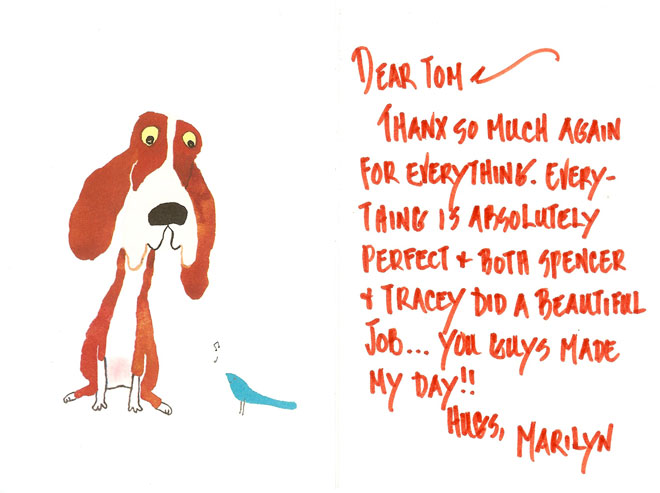 DEAR TOM
THANX SO MUCH AGAIN
FOR EVERYTHING. EVERY-
THING IS ABSOLUTELY
PERFECT + BOTH SPENCER
+ TRACEY DID A BEAUTIFUL
JOB... YOU GUYS MADE
MY DAY!!
HUGS,
MARILYN